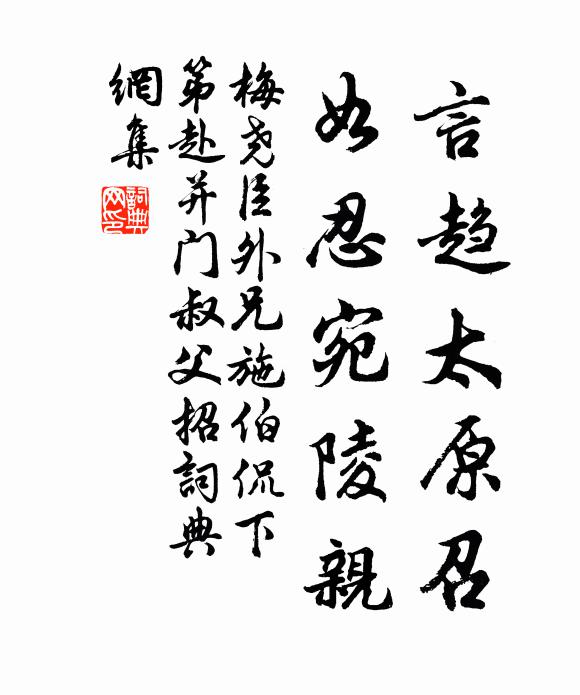 言趋太原召
如忍宛陵親
梅尧臣外兄施伯侃下
第赴并门叔父招詞典
網集
詞典網印